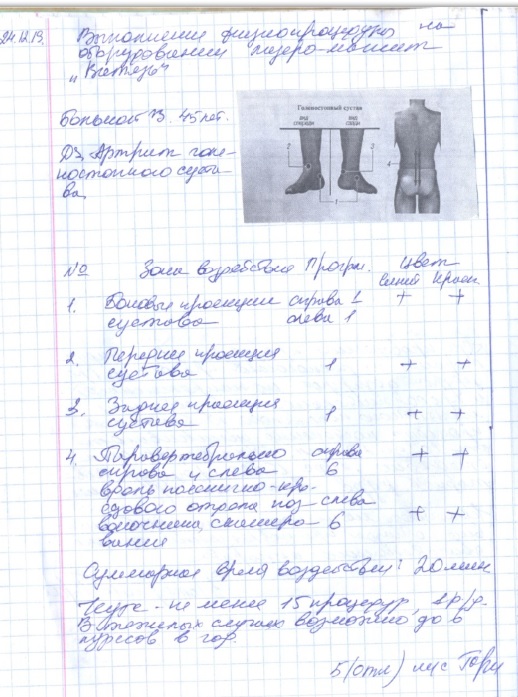 24.12.19. Выполнение физиопроцедуры на
оборудовании лазеро-магнит
"Витязь"
Больной В. 45 лет.
Дз. Артрит голе-
ностопного суста-
ва
Голеностопный сустав
вид спереди
вид сзади
2
3
1
4
№ Зона воздействия Прогр. Цвет
синий красн
1. Боковые проекции справа 1 + +
сустава слева 1
2. Передняя проекция
сустава 1 + +
3. Задняя проекция
сустава 1 + +
4. Паравертебрально справа + +
справа и слева 6
вдоль пояснично-кре-
стцового отдела поз- слева
воночника, сканиро- 6 + +
вание
Суммарное время воздействия: 20 мин
Курс - не менее 15 процедур, 1 р/д.
В тяжелых случаях возможно до 6
курсов в год.
5 (отл)